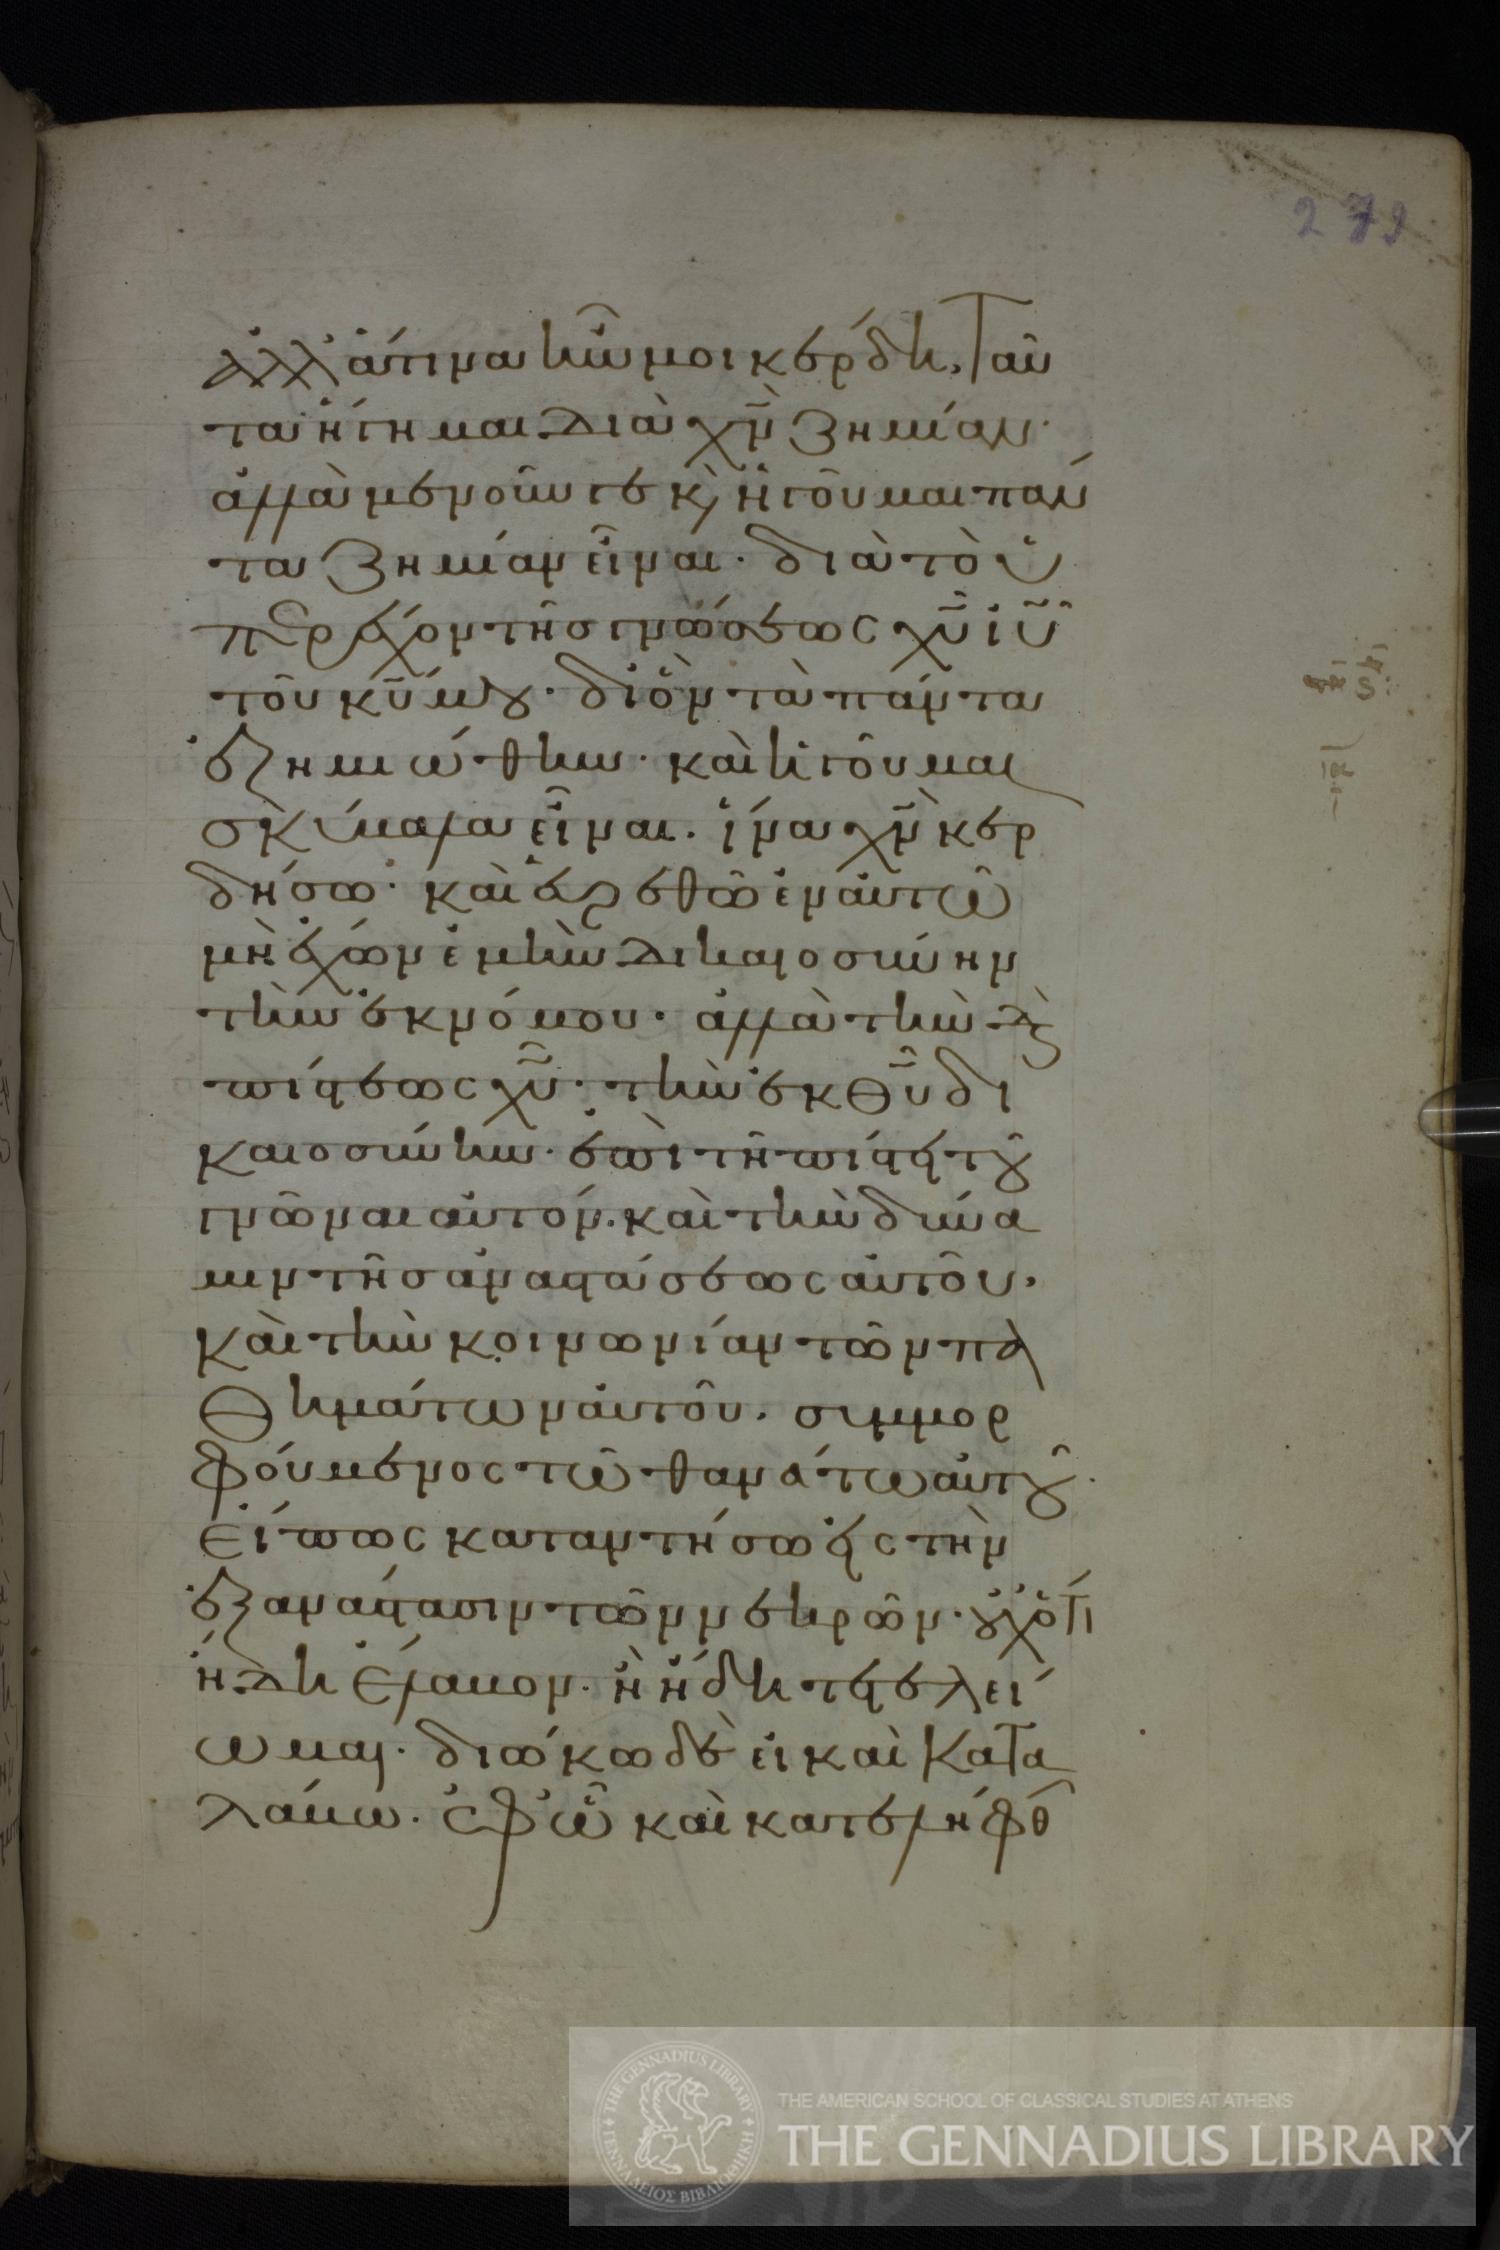 279
ἀλλ' ἅτινα ἦν μοι κέρδη, ταῦ
τα ἥγημαι διὰ χν̅ ζημίαν·
ἀλλὰ μενοῦνγε κ ἡγοῦμαι πάν
τα ζημίαν εἶναι· διὰ τὸ ὑ
περέχον τῆς γνώσεως χυ̅ ιυ̅
τοῦ κυ̅ μου· δι' ὃν τὰ πάντα
ἐζημιώθην· καὶ ἡγοῦμαι
σκύβαλα εἶναι· ἵνα χν̅ κερ
δήσω· καὶ εὑρεθῶ ἐν αὐτῶ
μὴ ἔχων ἐμὴν δικαιοσύνην
τὴν ἐκ νόμου· ἀλλὰ τὴν δὲ
πίστεως χυ̅· τὴν ἐκ θυ̅ δι
καιοσύνην· ἐπὶ τῆ πίστει τοῦ
γνῶναι αὐτόν· καὶ τὴν δύνα
μιν τῆς ἀναστάσεως αὐτοῦ·
καὶ τὴν κοινωνίαν τῶν πα
θημάτων αὐτοῦ· συμμορ
φούμενος τῶ θανάτω αὐτοῦ·
εἴπως καταντήσω εἰς τὴν
ἐξανάστασιν τῶν νεκρῶν· οὐχ ὅτι
ἤδη ἔλαβον· ἢ ἤδη τετελεί
ωμαι· διώκω δὲ εἰ καὶ κατα
λάβω· ἐφ' ὧ καὶ κατελήφθ
THE AMERICAN SCHOOL OF CLASSICAL STUDIES AT ATHENS
THE GENNADIUS LIBRARY
THE GENNADIUS LIBRARY
ΓΕΝΝΑΔΕΙΟΣ ΒΙΒΛΙΟΘΗΚΗ